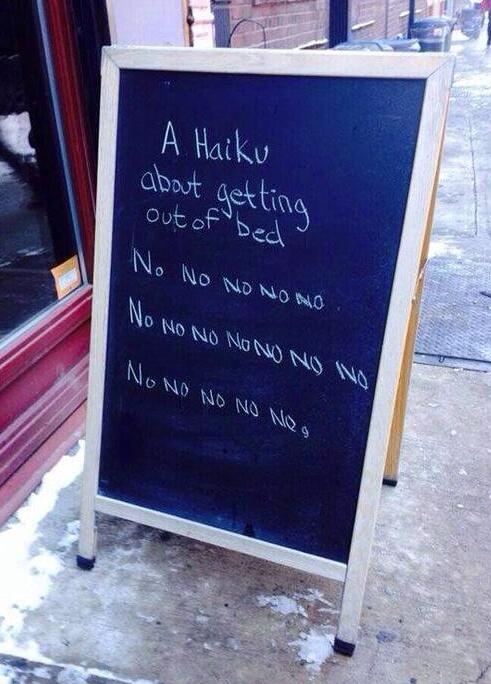 A Haiku
about getting
out of bed
No No NO NO NO
No NO NO NO NO NO NO
No NO NO NO NO,